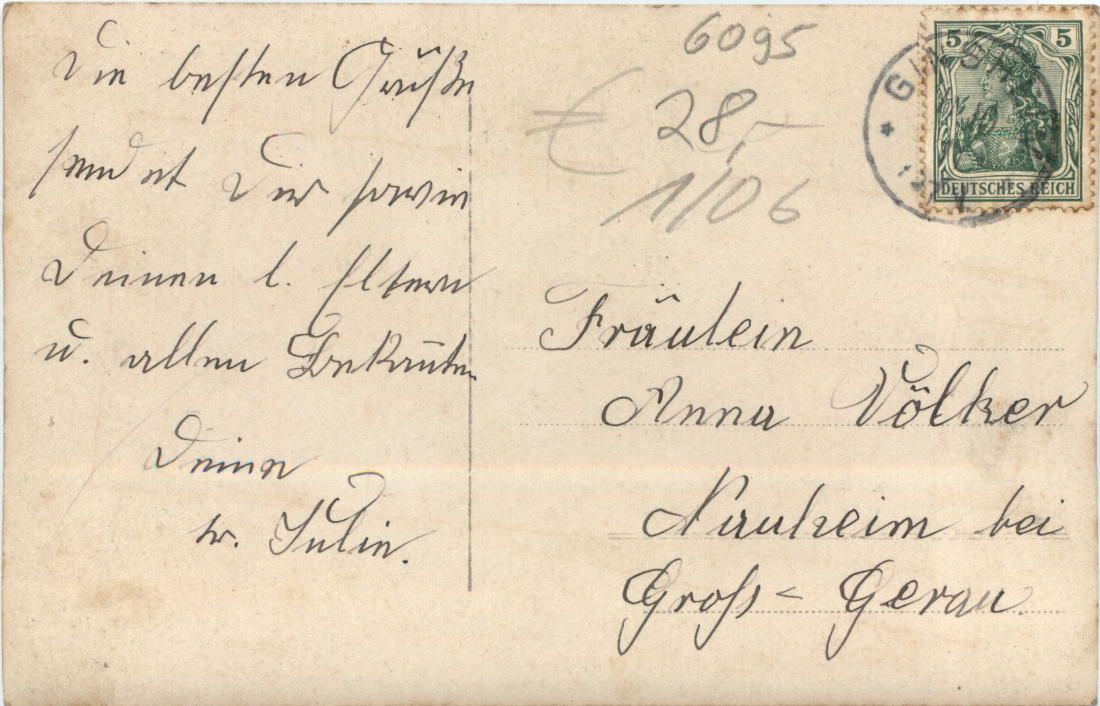 Die besten Grüße
sendet Dir sowie
Deinen l. Eltern
u. allen Bekannten
Deine
tr. Julie.
6095
€ 28,-
1/06
5 5
DEUTSCHES REICH
Fräulein
Anna Völker
Nauheim bei
Gross-Gerau.